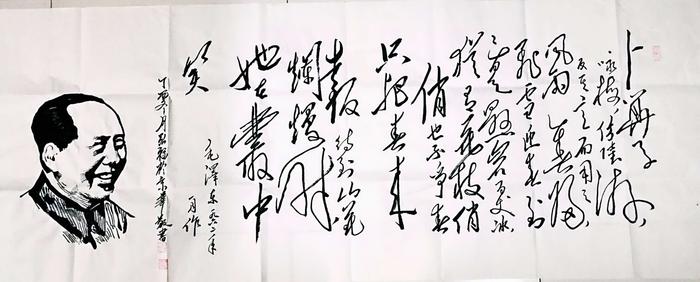 卜算子
咏梅 读陆游
反其意而用之
风雨送春归
飞雪迎春到
已是悬崖百丈冰
犹有花枝俏
俏也不争春
只把春来
报 待到山花
爛熳时
她在叢中
笑
毛澤东
月作